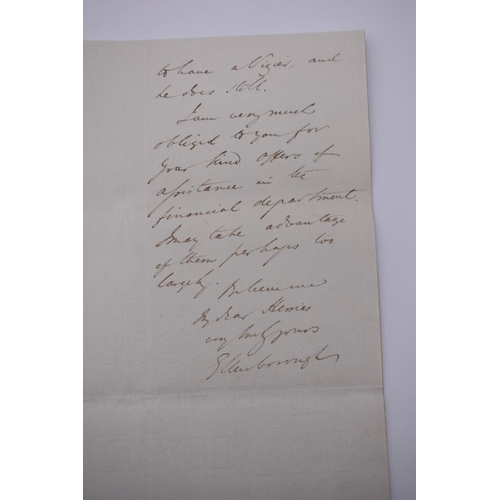 to have a Vizier, and
he does still.
I am very much
obliged to you for
your kind offers of
assistance in the
financial department.
I may take advantage
of them perhaps too
largely.
Believe me
My dear Herries
very truly yours
Ellenborough